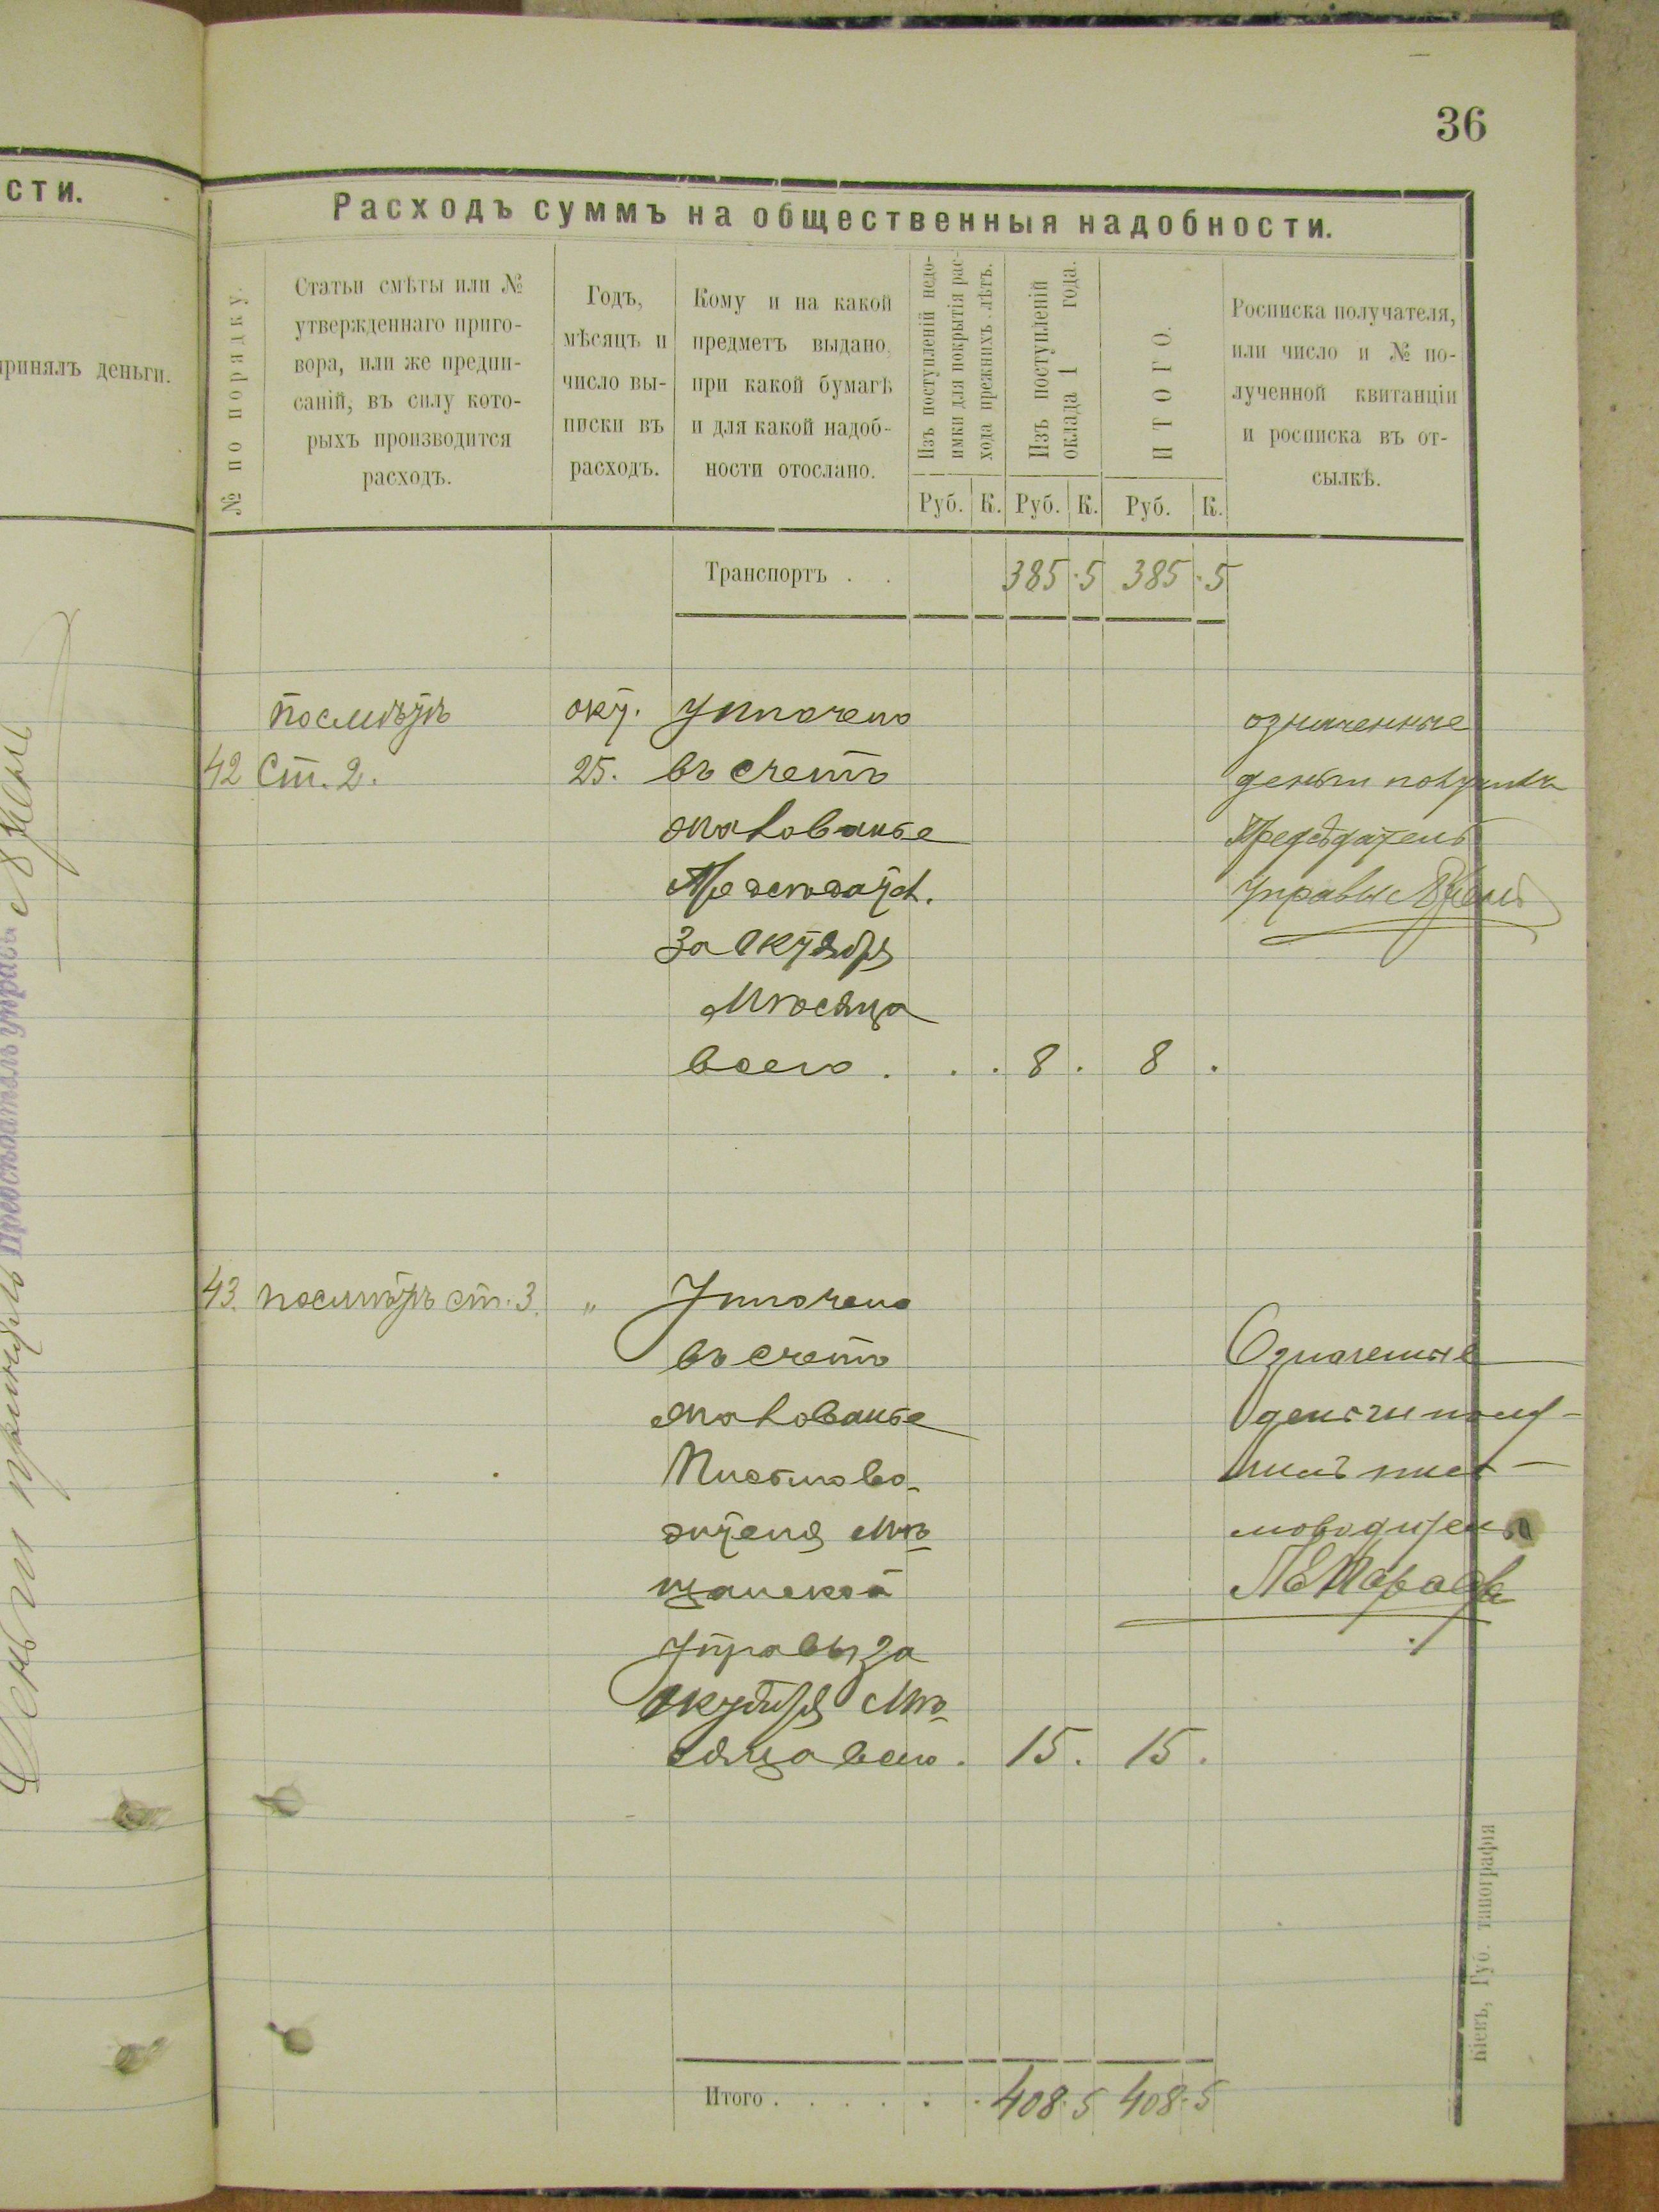 сти.
принялъ деньги.
36
Расходъ суммъ на общественныя надобности.
№ по порядку.
Статьи смѣты или №
утвержденнаго приго-
вора, или же предпи-
саній, въ силу кото-
рыхъ производится
расходъ.
Годъ,
мѣсяцъ и
число вы-
писки въ
расходъ.
Кому и на какой
предметъ выдано,
при какой бумагѣ
и для какой надоб-
ности отослано.
Изъ поступленій недо-
имки для покрытія рас-
хода прежнихъ лѣтъ.
Изъ поступленій
оклада 1 года.
ИТОГО.
Росписка получателя,
или число и № по-
лученной квитанціи
и росписка въ от-
сылкѣ.
Руб. К. Руб. К. Руб. К.
Транспортъ . . 385 5 385 5
посмѣтѣ окт. Уплочено
42 Ст. 2. 25. въ счетъ
жалованье
Председат.
За Октябрь
Мѣсяца
всего . . . 8 . 8 .
означенные
деньги получилъ
Предсѣдатель
Управы
43. посмѣтѣ ст. 3. " Уплочено
въ счетъ
жалованье
Письмово-
дителя Мѣ-
щанской
Управы за
Октября Мѣ-
сяца всего . 15 . 15 .
Означенные
деньги полу-
чилъ пись-
моводитель
Итого . . . . . . . 408 5 408 5
Кіевъ, Губ. типографія